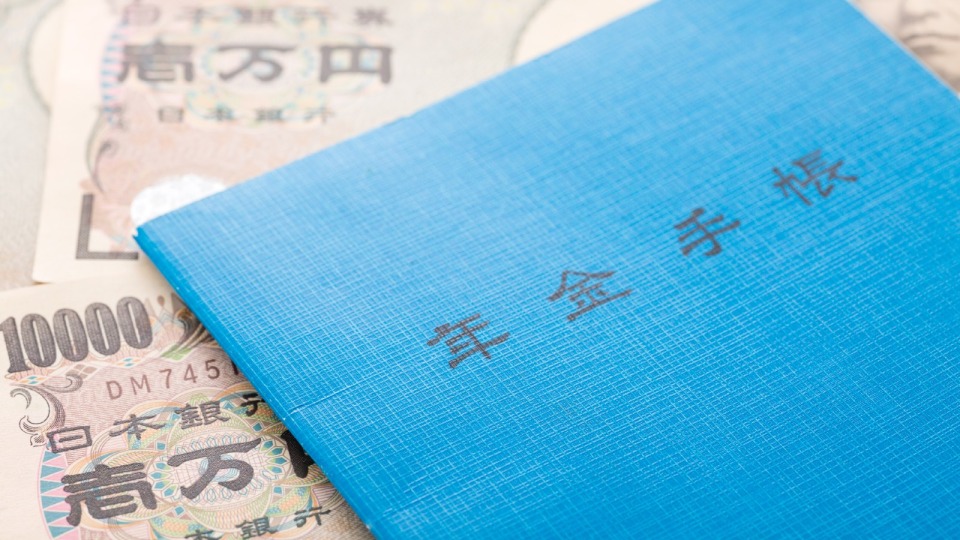 日本銀行券
壱万円
日本銀行
年金手帳
10000
DM745
日本銀行
壱万
本銀行